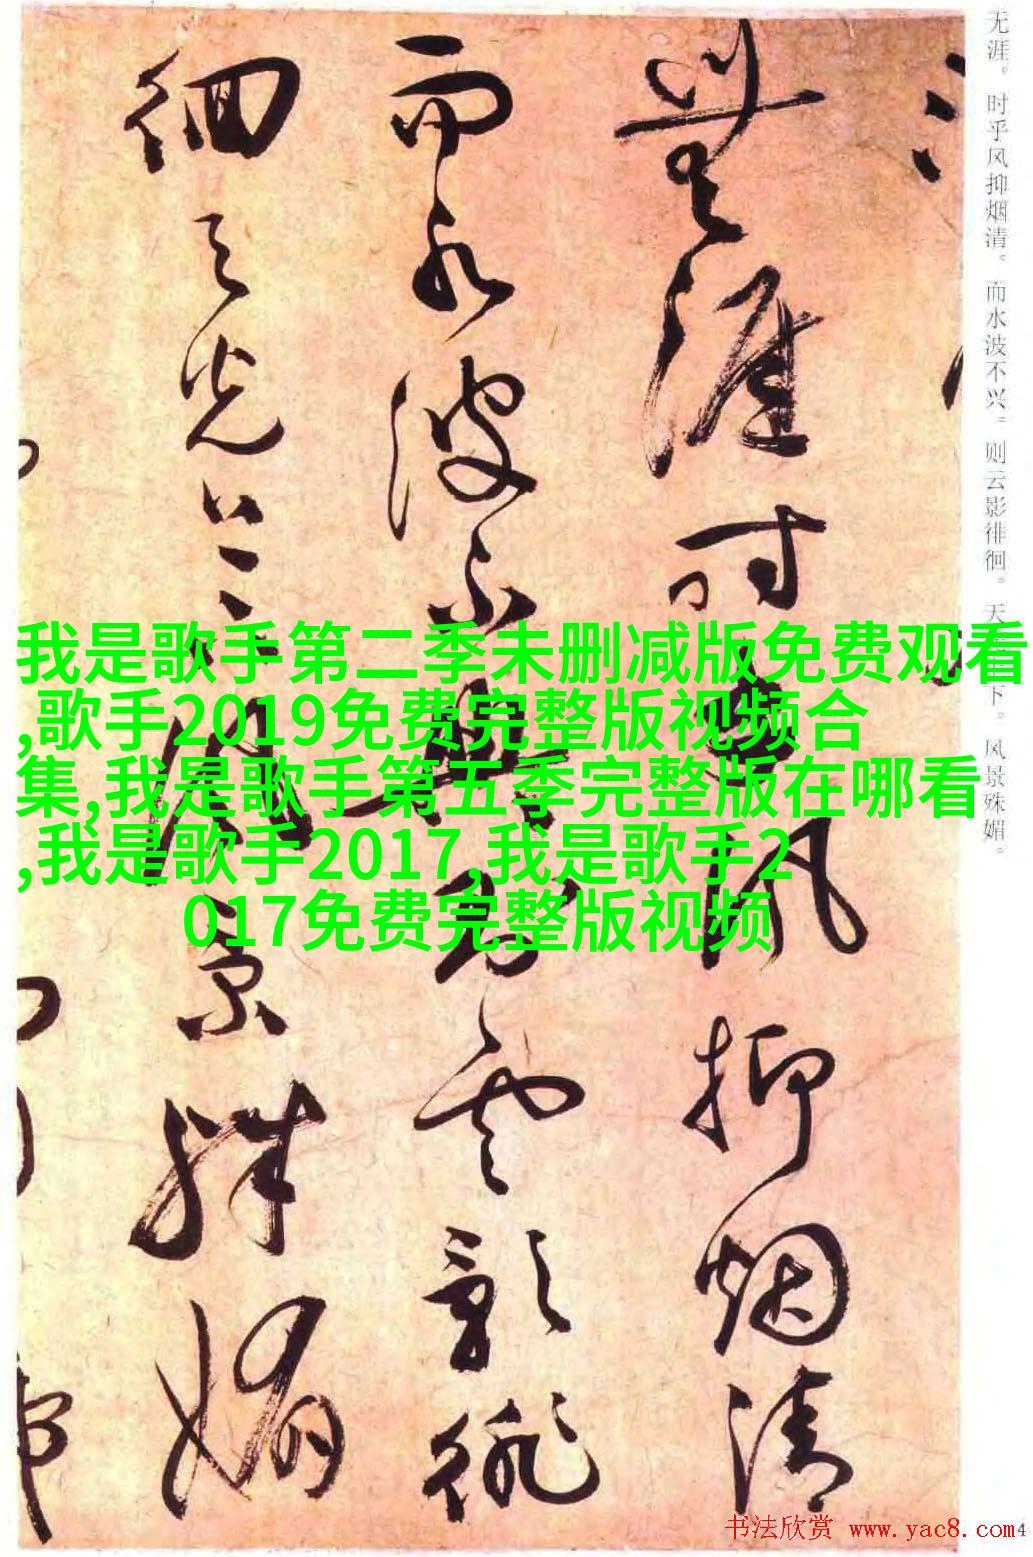 无涯。时乎风抑烟清。而水波不兴。则云影徘徊。天下。风景殊媚。
無涯時乎風抑烟清
而水波不興則雲影徘
徊天光上下風景殊媚
我是歌手第二季未删减版免费观看
,歌手2019免费完整版视频合
集,我是歌手第五季完整版在哪看
,我是歌手2017,我是歌手2
017免费完整版视频
书法欣赏 www.yac8.com
4